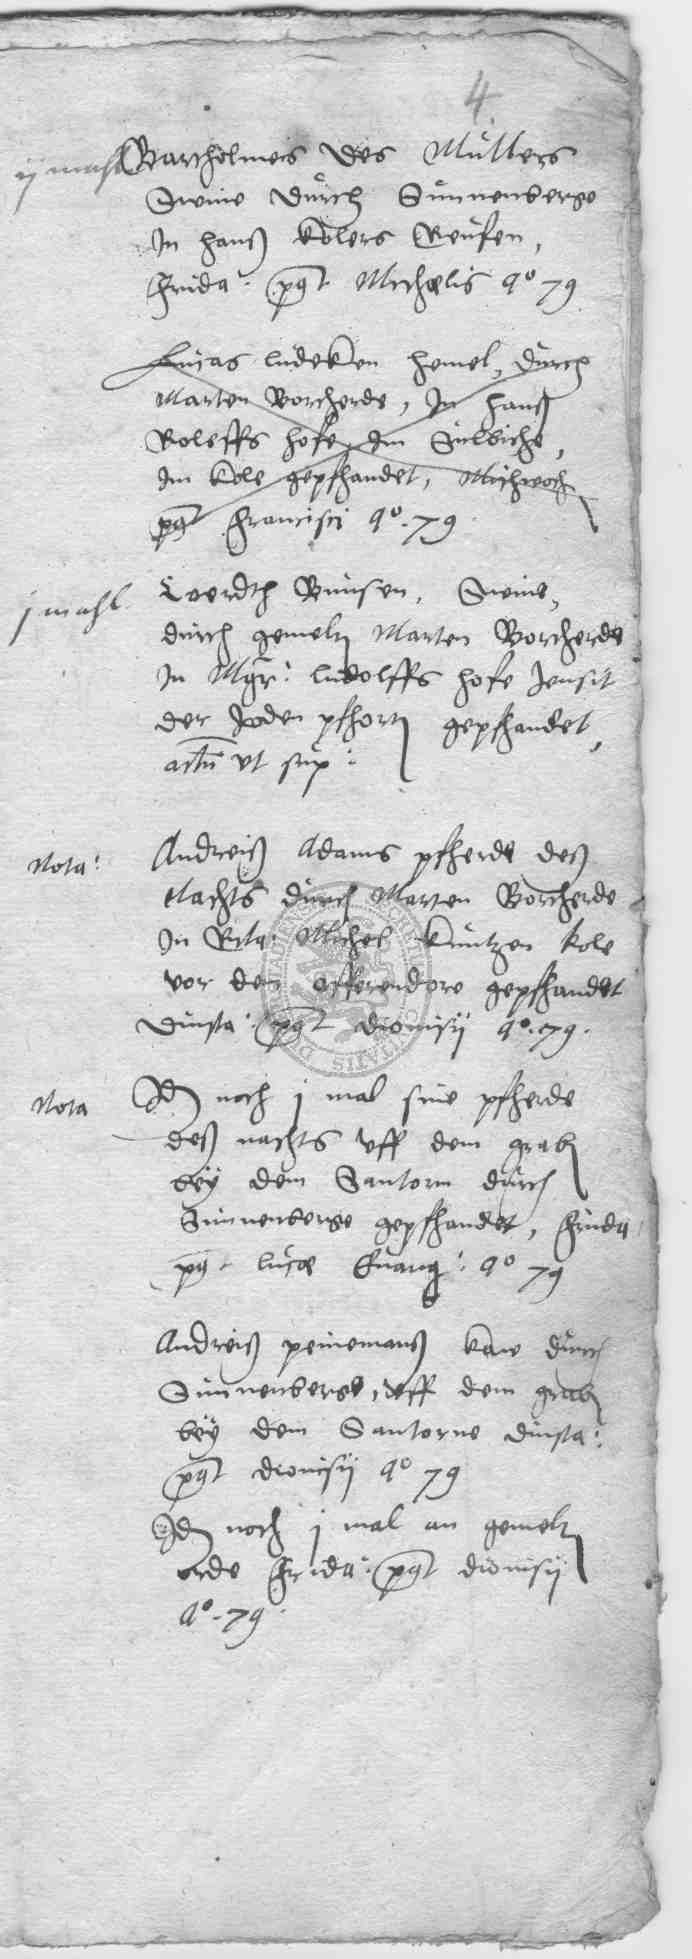 4
ij mahl Bartholmeis des Müllers
Sweine durch Sunnenberge
In Hanß Kolers
Frida: post Michaelis Ao 79
Lucas Ludeken hemel, durch
Marten Borcherde, In Hanß
Roleffs hofe, Im Sulbiche,
Im kole gepfhandet, Mithwoch
post Francisci Ao. 79
j mahl Coerdth Bunsen, Sweine,
durch gemelt Marten Borcherde
In Mgr: Ludolffs hofe Jensit
der Joden pfhort gepfhandet,
actu ut sup:
Nota: Andreiß Adams pfherde deß
Nachts durch Marten Borcherde
In Michel Kuntzen kole
vor dem gepfhandet
Dinsta: post Dionisij Ao. 79.
Nota It noch j mal sine pfherde
deß nachts uff dem grab
bey dem Santorn durch
Sunnenberge gepfhandet, Frida
post Lucæ Euang: Ao 79
Andreiß peinemanß kaw durch
Sunnenberge, uff dem grab
bey dem Santorne dinsta:
post dionisij Ao 79
It noch j mal an gemelt
orde Frida: post dionisij
Ao. 79.